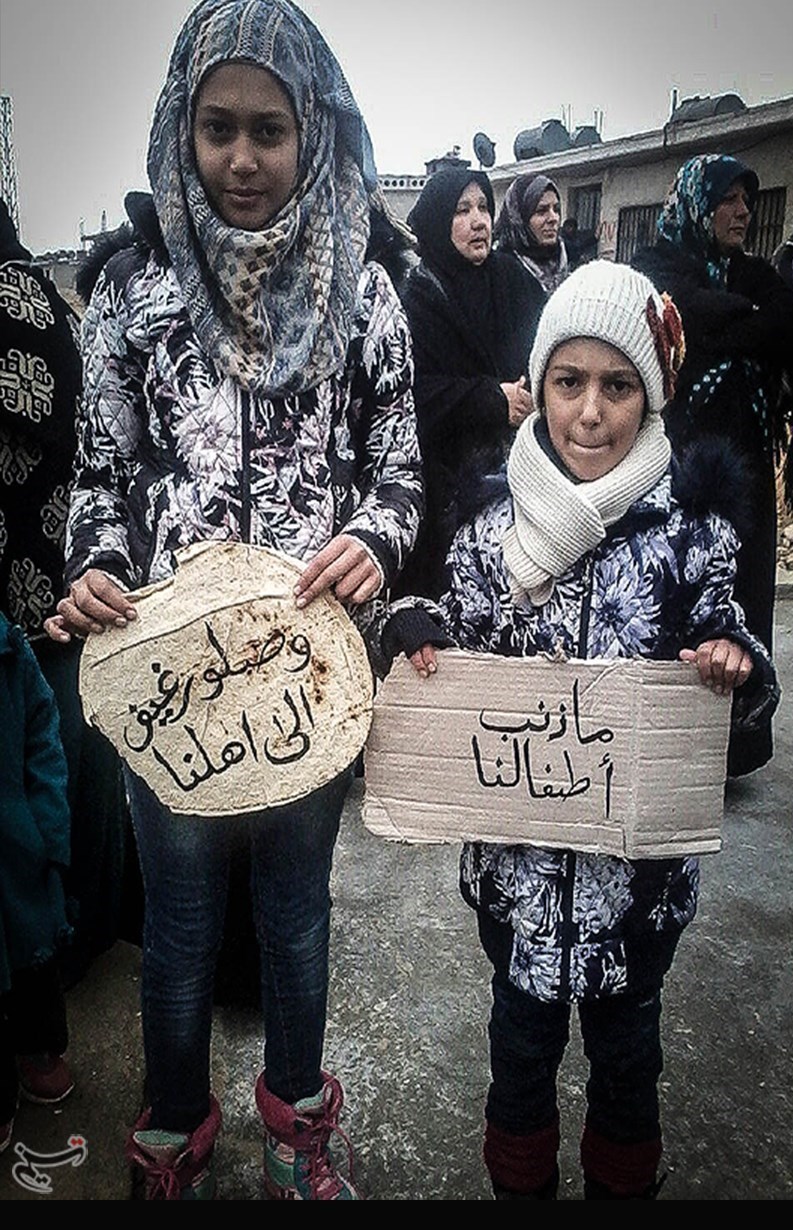 وصلو رغيف
الى اهلنا
ما ذنب
أطفالنا
تسنیم